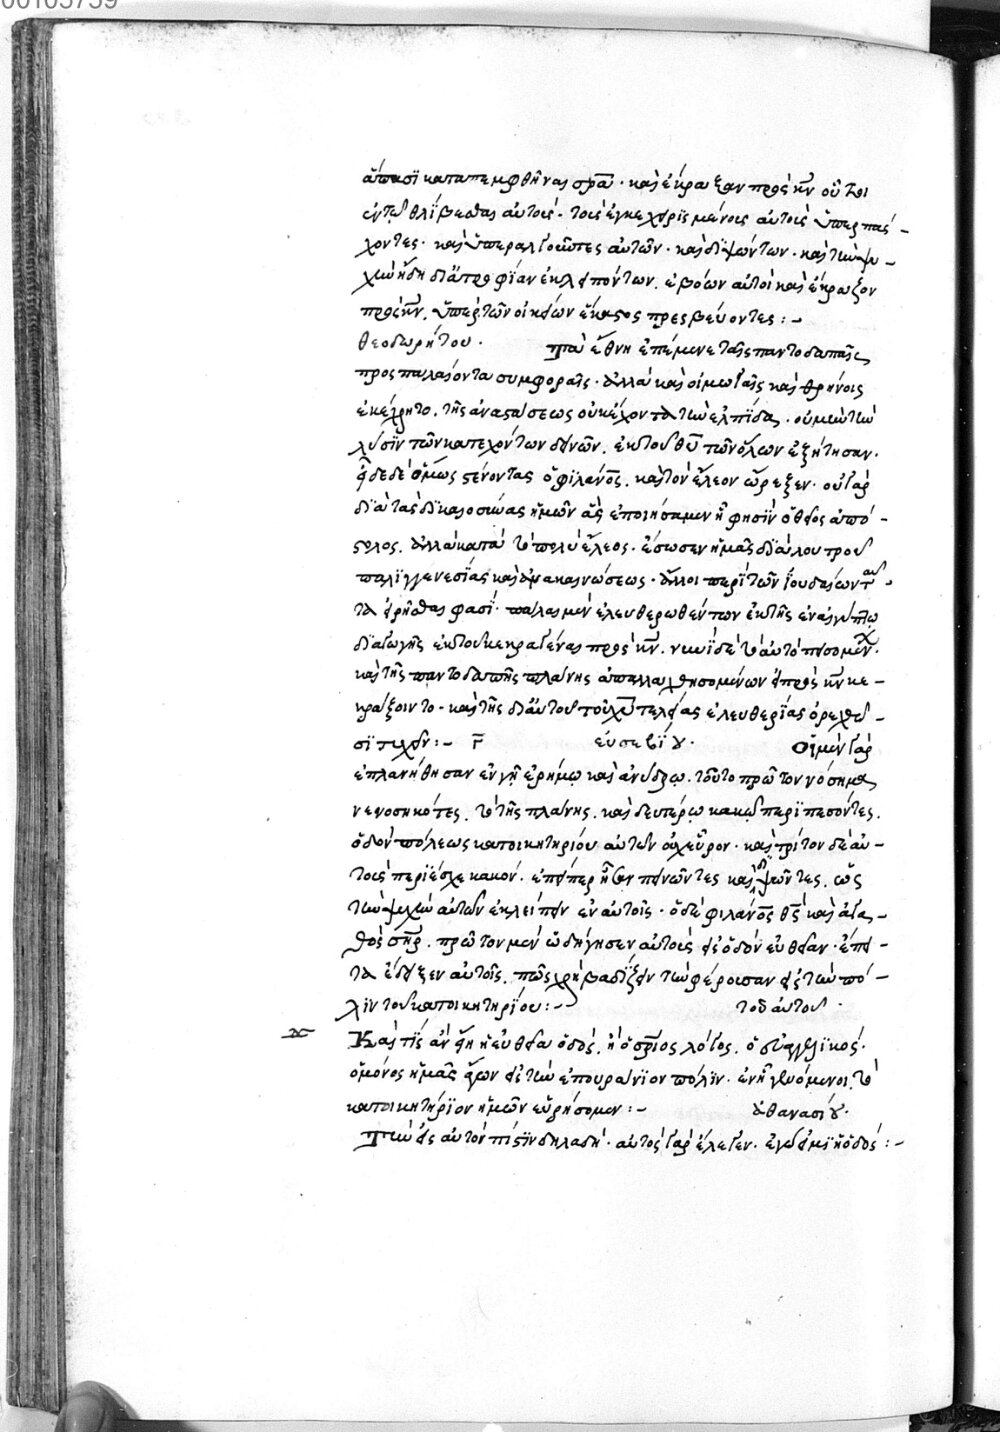 00103739
ἅπασϊ καταπεμφθῆναι σρ̅α̅ · καὶ ἐκραξαν πρὸς κν̅ οὗτοι
ἐν τῶ θλίβεσθαι αὐτούς · τοὺς ἐγκεχωρϊσμένους αὐτοὺς ὑπερπάς-
χοντες · καὶ ὑπεραλγοῦντες αὐτῶν · καὶ δϊψώντων · καὶ τὴν ψυ-
χὴν ἤδη δι' ἀτροφίαν ἐκλειπόντων. ἐβόων αὐτοὶ καὶ ἐκραζον
πρὸς κν̅. ὑπὲρ τῶν οἰκείων ἕκαστος πρεσβεύοντες :-
θεοδωρήτου · Τὰ ἔθνη ἐπέμενε ταῖς παντοδαπαῖς
προσπαλαίοντα συμφοραῖς · ἀλλὰ καὶ οἰμωγαῖς καὶ θρήνοις
ἐκέχρητο. τῆς ἀναστάσεως οὐκ ἔχοντα τὴν ἐλπίδα · οὐ μὴν τὴν
λύσϊν τῶν κατεχόντων δεινῶν. ἐκ τοῦ θυ̅ τῶν ὅλων ἐξήτησαν ·
εἶδε δὲ ὅμως στένοντας ὁ φϊλάνο̅ς̅. καὶ τὸν ἔλεον ὤρεξεν · οὐ γὰρ
δϊὰ τὰς δϊκαιοσύνας ἡμῶν ἃς ἐποιήσαμεν ἡ φησϊν ὁ θεῖος ἀπό-
στολος. ἀλλὰ κατὰ τὸ πολὺ ἔλεος · ἔσωσεν ἡμᾶς δϊὰ λουτροῦ
παλϊγγενεσΐας καὶ ἀνακαινώσεως · ἄλλοι περὶ τῶν ϊουδαίων ταῦ-
τα εἰρῆσθαι φασί · πάλαι μὲν ἐλευθερωθέντων ἐκ τῆς ἐν αἰγύπτῳ
δϊαγωγῆς ἐκ τοῦ κεκραγέναι πρὸς κν̅. νυνὶ δὲ τὸ αὐτὸ πεισομένων ·
καὶ τῆς παντοδαπῆς πλάνης ἀπαλλαχθησομένων εἰ πρὸς κν̅ κε-
κράξοιντο · καὶ τῆς δι' αὐτοῦ τοῦ χυ̅ τελείας ἐλευθερίας ὀρεχθῶ-
σϊ τυχεῖν :- Γ̅ εὐσεβΐου · Οἱ μὲν γὰρ
ἐπλανήθησαν ἐν γῇ ἐρήμῳ καὶ ἀνύδρῳ. τοῦτο πρῶτον νόσημα
νενοσηκότες. τὸ τῆς πλάνης. καὶ δευτέρῳ κακῷ περϊπεσόντες.
ὁδὸν πόλεως κατοικητηρίου αὐτῶν οὐχ εὗρον · καὶ τρίτον δὲ αὐ-
τοὺς περϊέσχε κακόν. ἐπείπερ ἦσαν πεινῶντες καὶ διψῶντες. ὡς
τὴν ψυχὴν αὐτῶν ἐκλείπειν ἐν αὐτοῖς · ὁ δὲ φιλάνο̅ς̅ θς̅ καὶ ἀγα-
θὸς σηρ̅. πρῶτον μὲν ὡδήγησεν αὐτοὺς εἰς ὁδὸν εὐθεῖαν · ἔπει-
τα ἔδειξεν αὐτοῖς. πῶς χρὴ βαδίζειν τὴν φέρουσαν εἰς τὴν πό-
λϊν τοῦ κατοικητηρίου :- τοῦ αὐτοῦ ·
Καὶ τίς ἂν εἴη ἡ εὐθεῖα ὁδός. ἢ ὁ σρ̅ιος λόγος. ὁ εὐαγγελϊκός.
ὁ μόνος ἡμᾶς ἄγων εἰς τὴν ἐπουράνϊον πόλϊν · ἐν ᾗ γενόμενοι τὸ
κατοικητήρϊον ἡμῶν εὑρήσομεν :- ἀθανασίου ·
Τὴν εἰς αὐτὸν πίστϊν δηλαδή · αὐτὸς γὰρ ἔλεγεν. ἐγώ εἰμϊ ἡ ὁδός :-